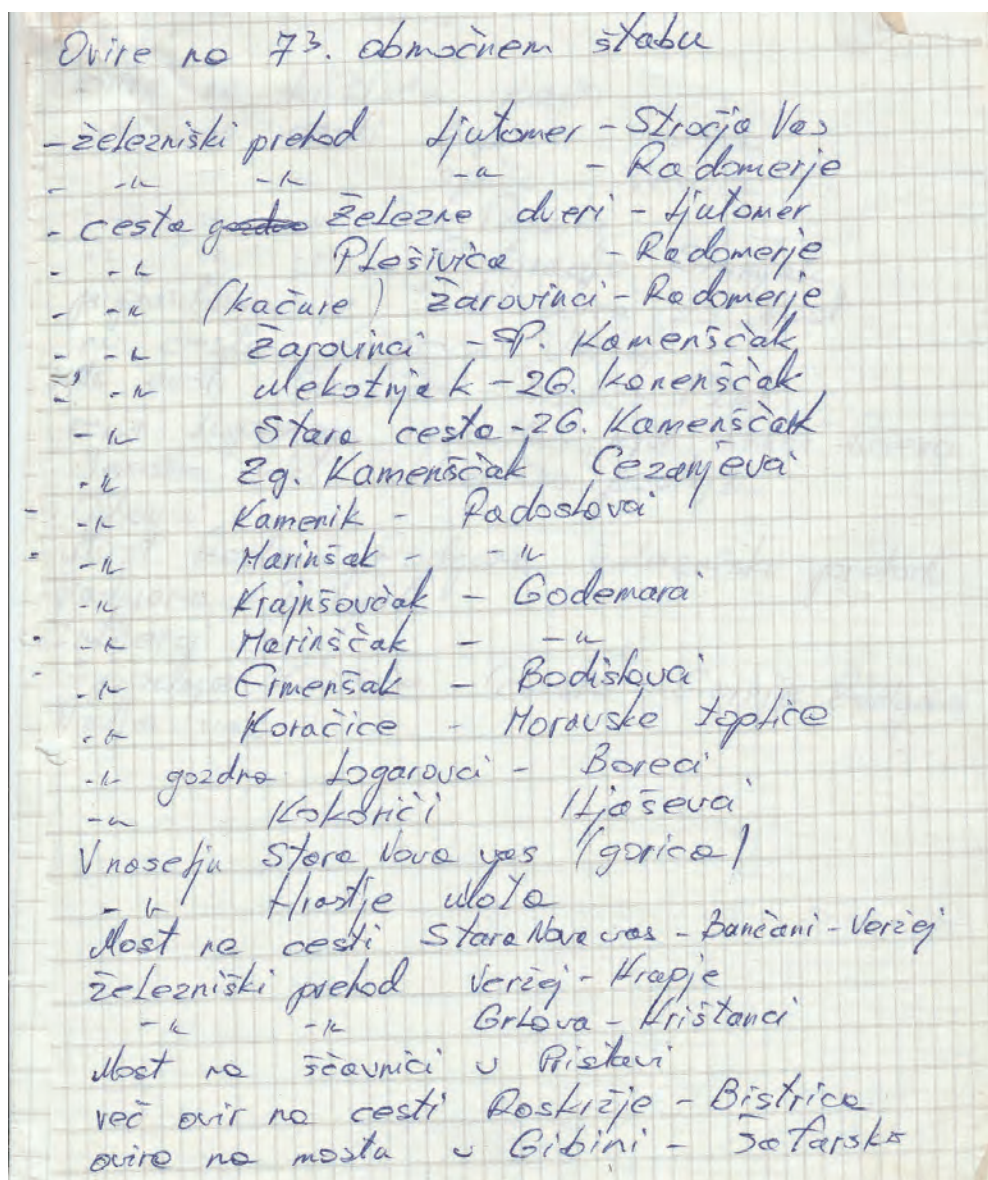 Ovire na 73. območnem štabu
- železniški prehod Ljutomer - Stročja Vas
- -"- -"- -"- - Radomerje
- cesta železne dveri - Ljutomer
- -"- Plešivica - Radomerje
- -"- (kačure) Žarovinci - Radomerje
- -"- Žarovinci - SP. Kamenščak
- -"- Mekotnjak - ZG. Kamenščak
-"- Stara cesta - ZG. Kamenščak
-"- Zg. Kamenščak Cezanjevci
- -"- Kamenik - Radoslovci
- -"- Marinšak - -"-
-"- Krajnšovčak - Godemarci
- -"- Marinščak - -"-
- -"- Ermenšak - Bodislavci
-"- Koračice - Moravske toplice
-"- gozdna Logarovci - Boreci
-"- Kokoriči Iljaševci
V naselju Stara Nova vas (gorica)
-"- Hrastje Mota
Most na cesti Stara Nova vas - Bančani - Veržej
železniški prehod Veržej - Krapje
-"- -"- Grlova - Krištanci
Most na ščavnici v Pristavi
več ovir na cesti Roskrižje - Bistrica
ovira na mostu v Gibini - Šafarsko